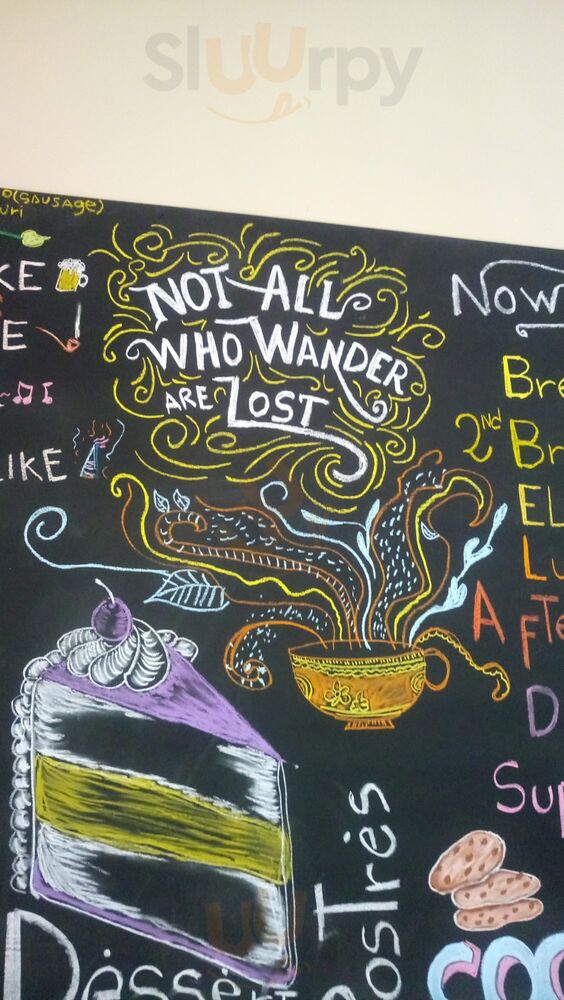 Sluurpy
o(sausage)
uri
KE
E
LIKE
NOT ALL
WHO WANDER
ARE LOST
Now
Bre
2nd Br
EL
Lu
AFTe
D
Sup
Dessert
PosTrés
COO